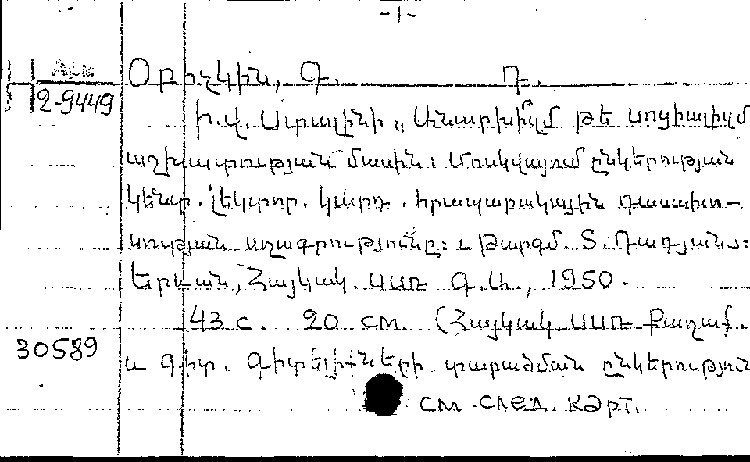 -1-
Օբիչկին, Գ. Դ.
2-9449
Ի.Վ. Ստալինի „Անարխիզմ թե սոցիալիզմ
աշխատության մասին: Մոսկվայում ընկերության
կենտր. լեկտոր. կարդ. հրապարակային դասախո-
սության սղագրությունը: Թարգմ. Ց.
Երևան, Հայկակ. ՍՍՌ Գ.Ա., 1950.
43 с. 20 см. (Հայկակ ՍՍՌ Քաղաք.
30589
և գիտ. Գիտելիքների տարածման ընկերություն
см. след. карт.